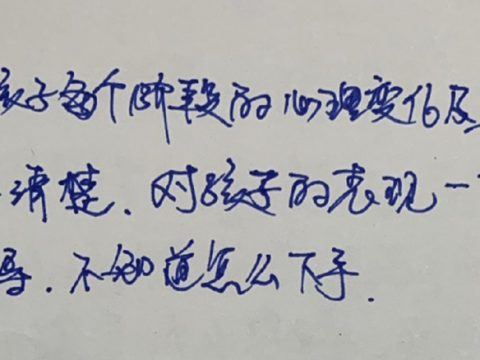 孩子每个阶段的心理变化及
清楚.对孩子的表现一
导.不知道怎么下手.